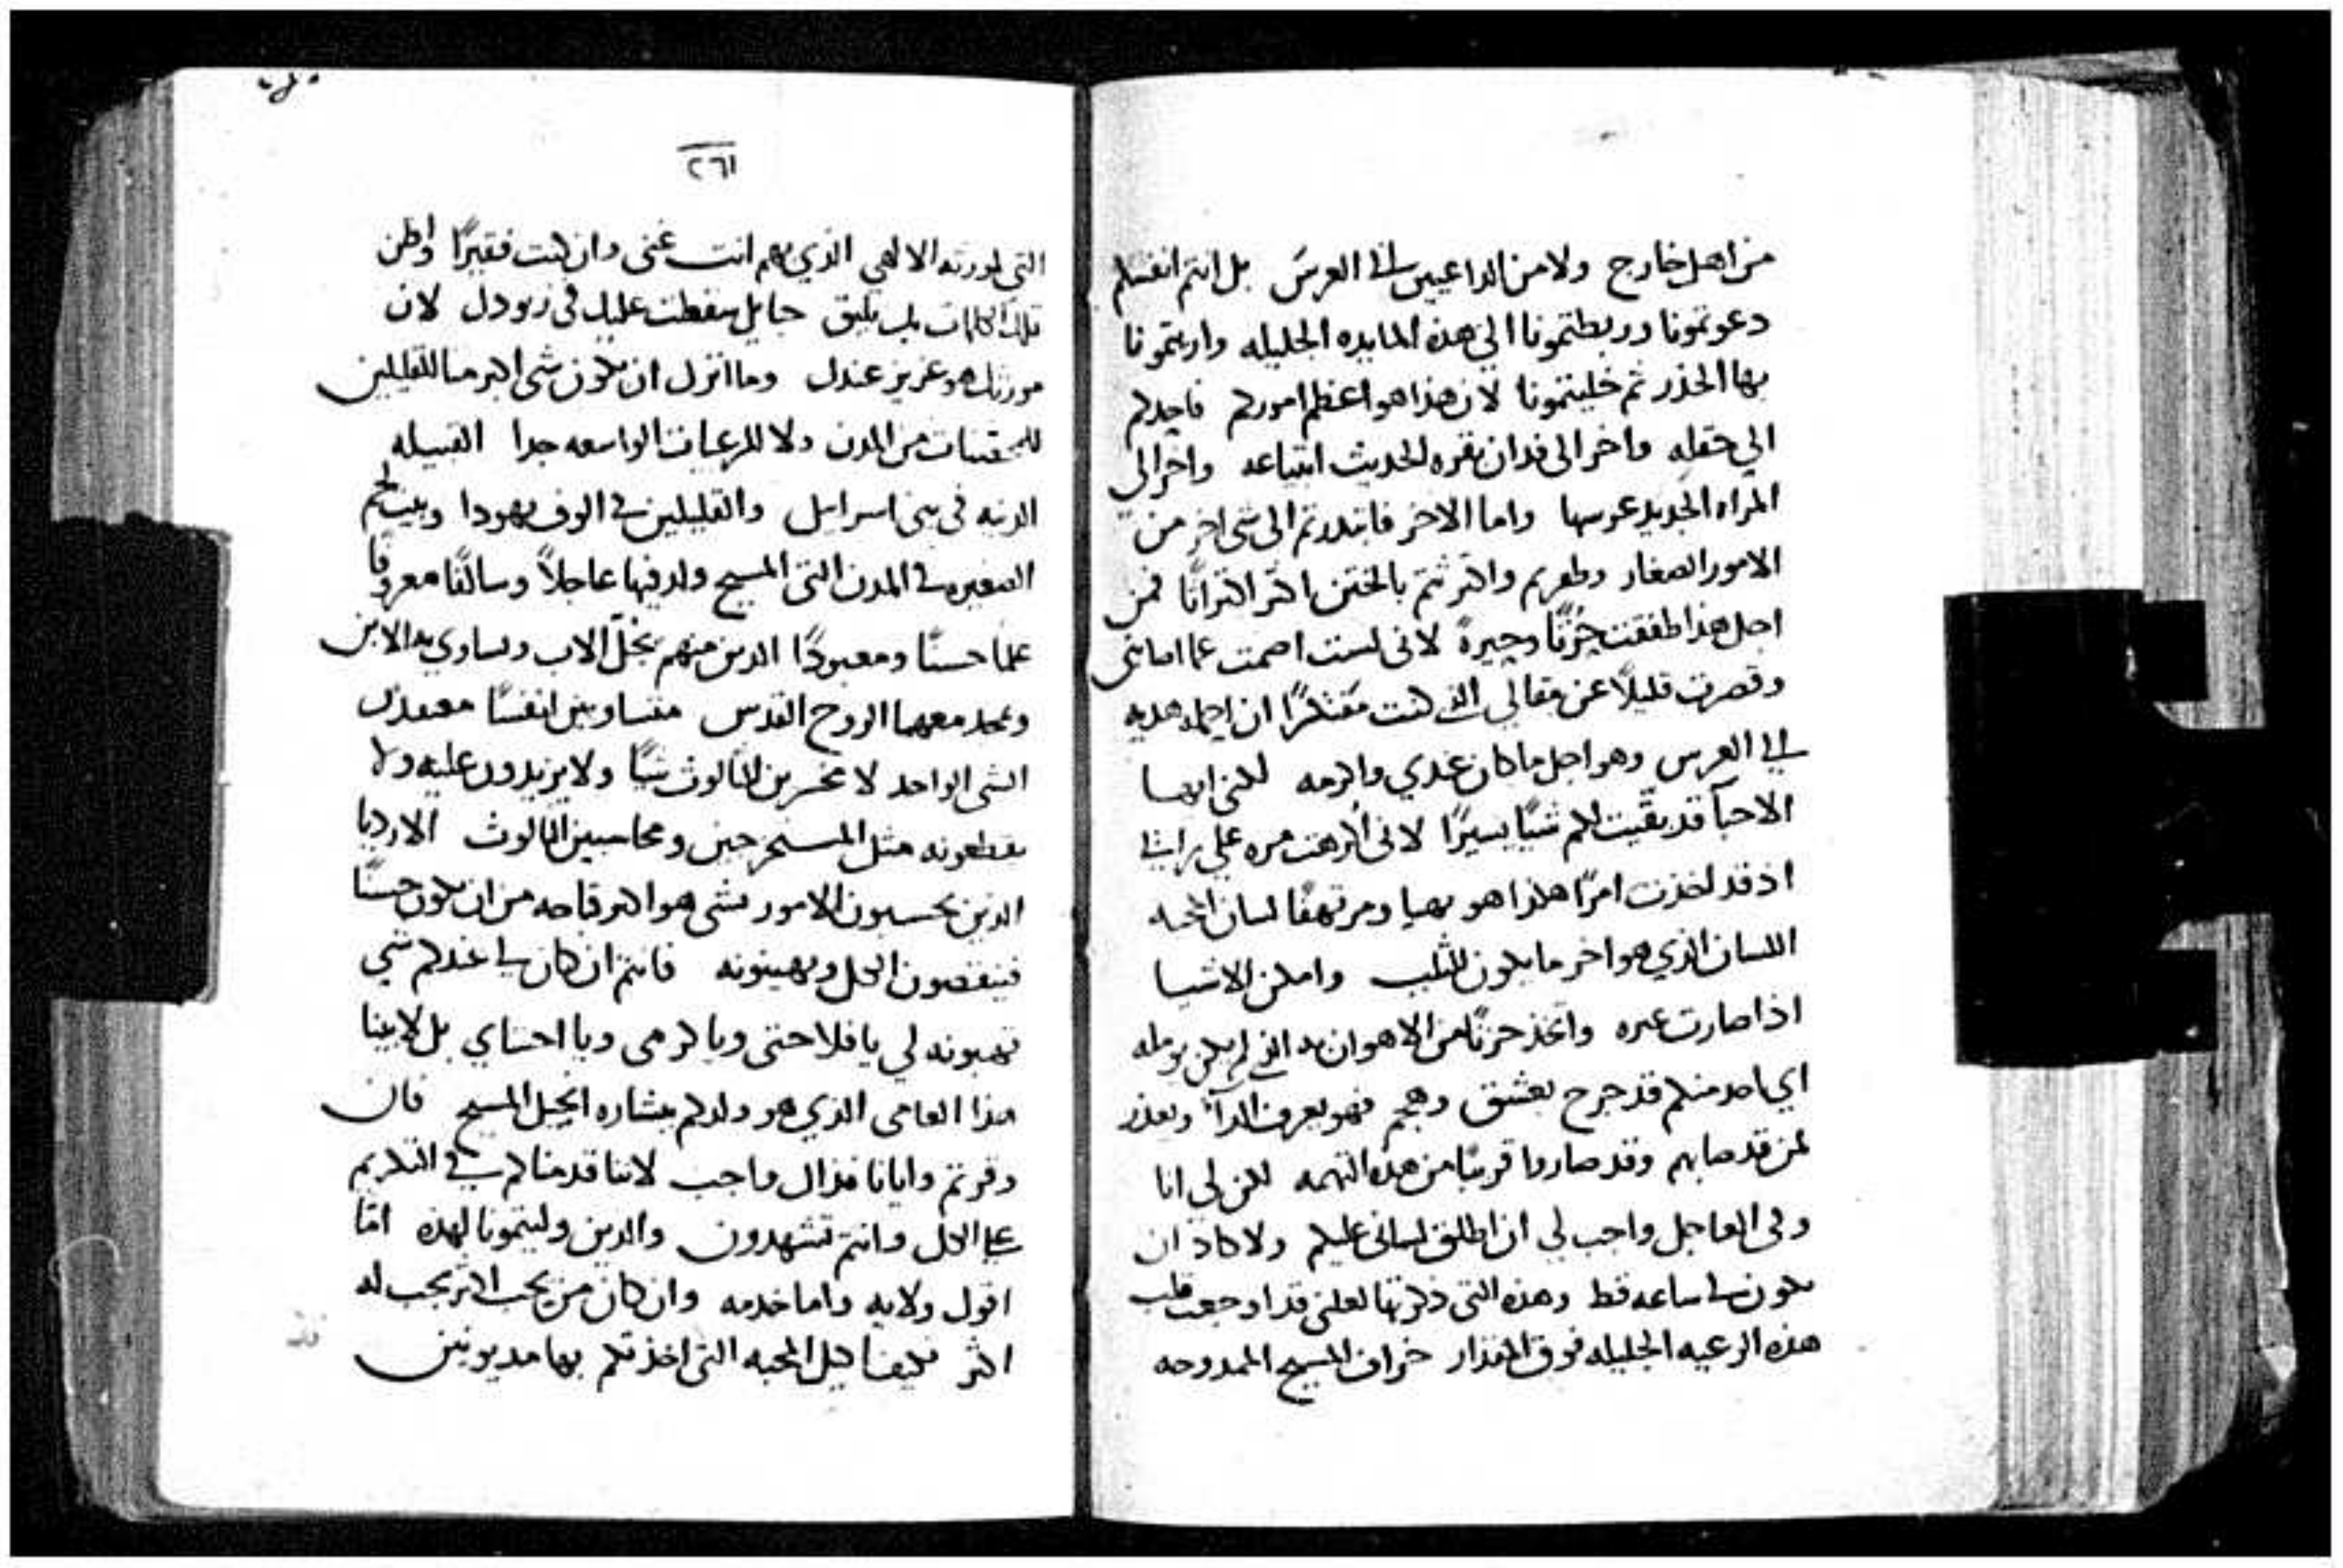 من اهل خارج ولا من الداعيين الى العرس بل انتم انفسكم
دعوتمونا وربطتمونا الي هذه المايده الجليله واريتمونا
بها الحذر ثم خليتمونا لان هذا هو اعظم اموركم فاحدكم
الي حقله واخر الى فدان بقره الحديث ابتياعه واخر الي
المراه الجديد عرسها واما الاخر فابتدرتم الى شى اخر من
الامور الصغار
اجل هذا طفقت حزنًا وحيرةً لانى لست اصمت عما اصابنى
وقصرت قليلًا عن مقالي الذى كنت مفتكرًا ان احمله هديه
الى العرس وهو اجل ما كان عندي واكرمه لكنى ايها
الاحبآ قد بقيت لكم شيًا يسيرًا لانى اكرهت مره على
اذ قد اخذت امرًا هكذا هو بهيا ومرتهفًا لسان المحبه
اللسان الذي هو اخر ما يكون للثلب وامكن الاشيا
اذا صارت غيره واتخذ حزنًا من الاهوان
اي احد منكم قد جرح بعشق وهجم فهو يعرف الدآ ويعذر
لمن قد صابهم وقد صاروا قريبًا من هذه التهمه لكن لي انا
وفى العاجل واجب لي ان اطلق لسانى عليكم ولا كاد ان
يكون ساعه قط وهذه التى ذكرتها لعلنى قد اوجعت قلب
هذه الرعيه الجليله فوق المقدار خراف المسيح الممدوحه
٢٦١
التى لورثه الالهى الذي بهم انت غنى وان كنت فقيرًا واظن
تلك الكلمات بك تليق حبايل سقطت عليك فى
مورثك هو عزيز عندك وما انزل ان يكون شى اكبر منا للقليلين
للمحقنات من المدن ولا للرعيات الواسعه جدا القبيله
الدنيه فى بنى اسرايل والقليلين فى الوف يهودا وبيت لحم
الصغيره فى المدن التى المسيح ولد فيها عاجلًا وسالفًا معروفًا
علمًا حسنًا ومعبودًا الذين منهم يجل الاب ويساوي به الابن
ويمجد معهما الروح القدس متساويين انفسًا معتقدى
الشى الواحد لا مخسرين للثالوث شيًا ولا يزيدون عليه ولا
يقطعونه مثل المستخرجين ومحاسبين الثالوث الارديا
الذين يحسبون الامور بشى هو اكبر قباحه من ان يكون حسنًا
فينقصون الكل ويهينونه فانتم ان كان لى عندكم شى
تهبونه لي يا فلاحتى ويا كرمى ويا احشاي بل لابينا
هذا العامى الذي هو ولدكم ببشاره انجيل المسيح فان
وقرتم وايانا فذاك واجب لاننا قدمناكم فى التكريم
على الكل وانتم تشهدون والذين وليتمونا لهذه امّا
اقول ولايه واما خدمه وان كان من يحب اكثر يجب له
اكثر فكيف اكيل المحبه التى اخذتكم بها مديونين